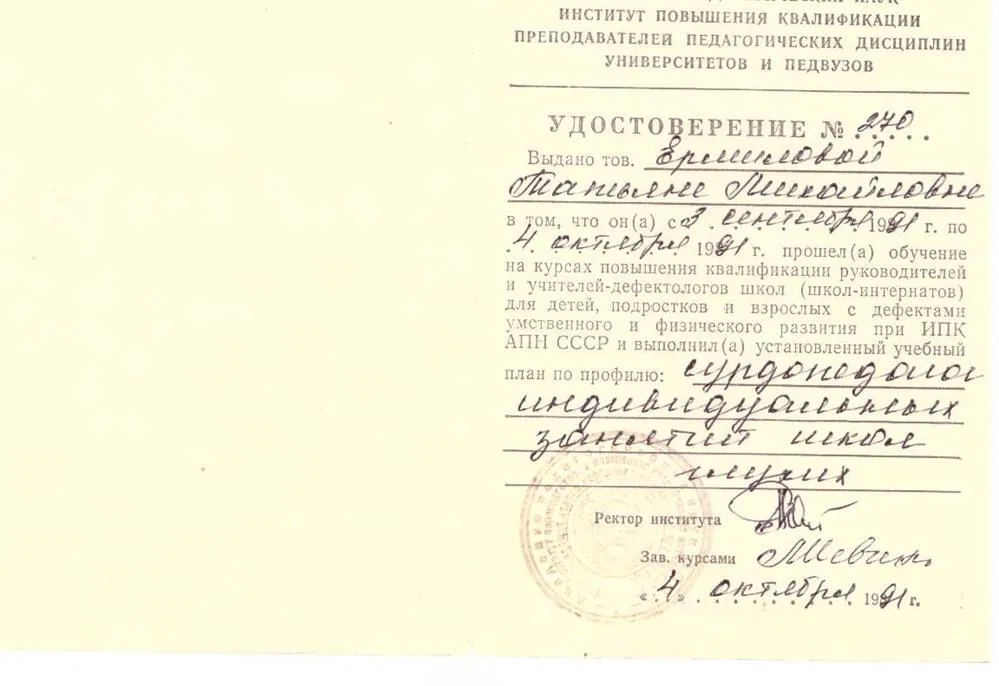 ИНСТИТУТ ПОВЫШЕНИЯ КВАЛИФИКАЦИИ
ПРЕПОДАВАТЕЛЕЙ ПЕДАГОГИЧЕСКИХ ДИСЦИПЛИН
УНИВЕРСИТЕТОВ И ПЕДВУЗОВ
УДОСТОВЕРЕНИЕ № 270
Выдано тов. Ермиловой
Татьяне Михайловне
в том, что он(а) с 3 сентября 1991 г. по
4 октября 1991 г. прошел(а) обучение
на курсах повышения квалификации руководителей
и учителей-дефектологов школ (школ-интернатов)
для детей, подростков и взрослых с дефектами
умственного и физического развития при ИПК
АПН СССР и выполнил(а) установленный учебный
план по профилю: сурдопедагог
индивидуальных
занятий школ
глухих
Ректор института
Зав. курсами
«4» октября 1991 г.